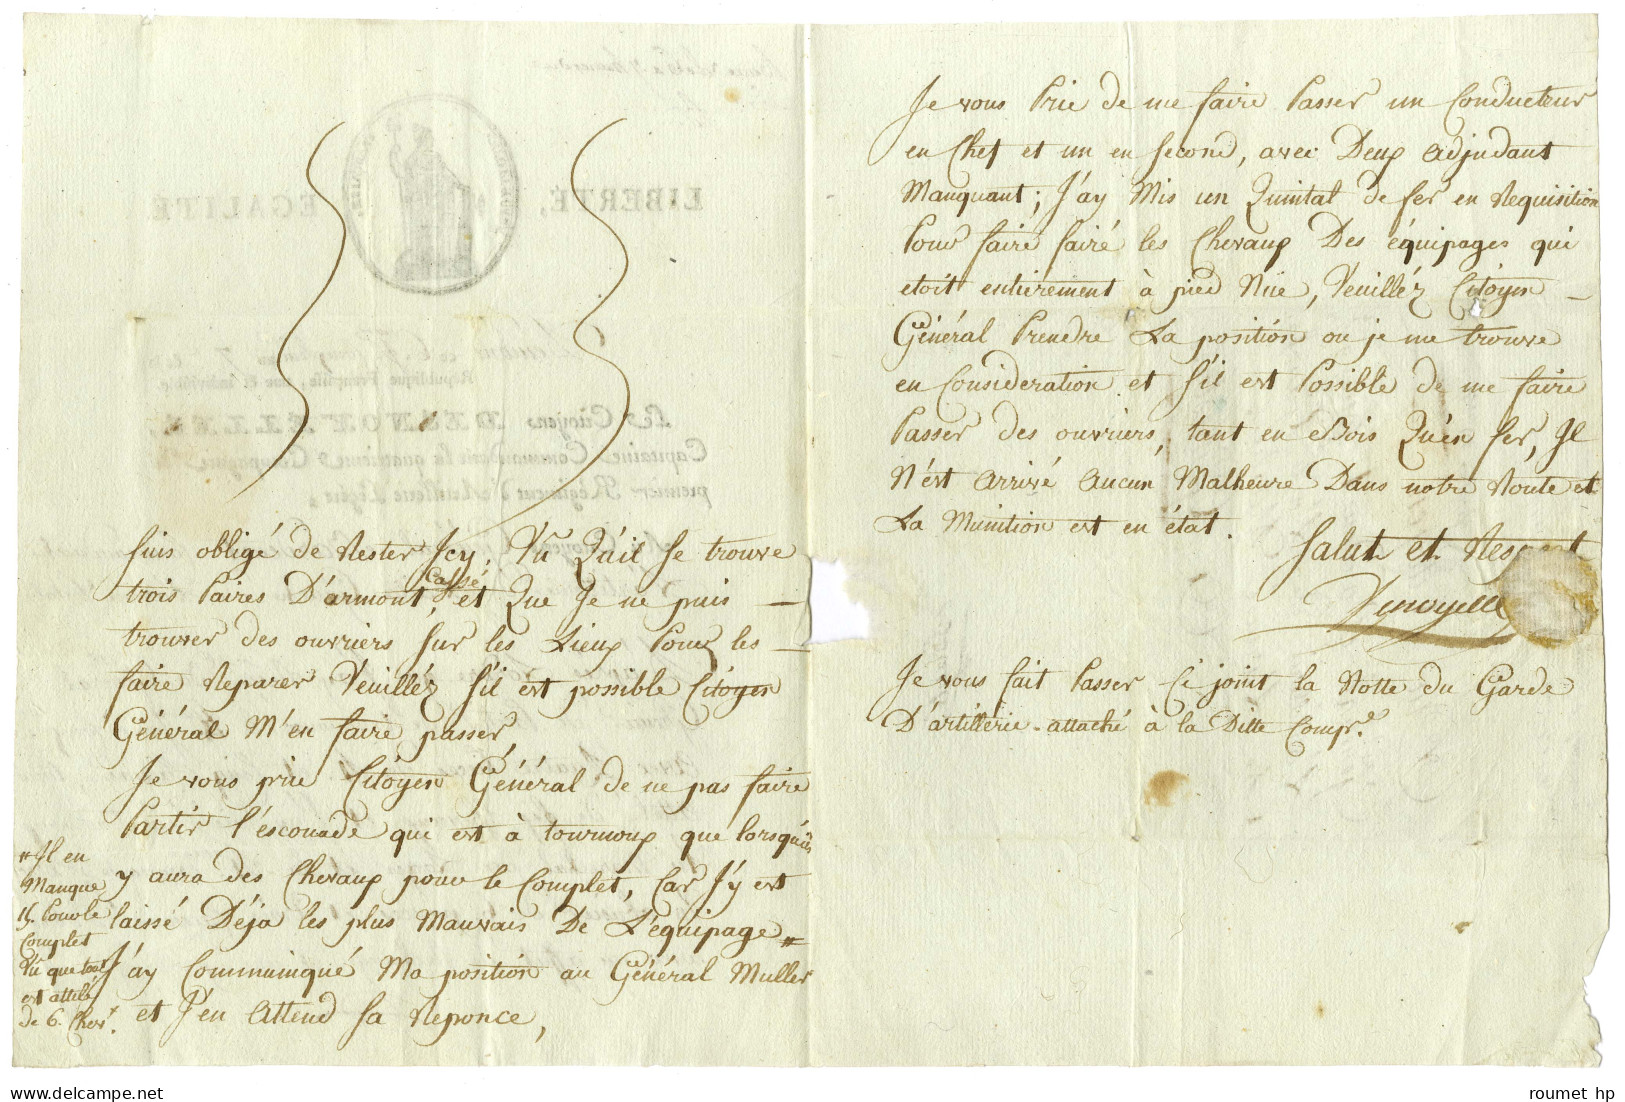 suis obligé de Rester Icy, Vû Qu'il se trouve
trois Paires D'armont, Cassé et Que Je ne puis —
trouver des ouvriers sur les Lieux Pour les —
faire Reparer Veuilléz s'il est possible Citoyen
Général M'en faire passer,
Je vous prie Citoyen Général de ne pas faire
Partir l'escouade qui est à tournoux que lorsqu'il
y aura des Chevaux pour le Complet, Car J'y est
laissé Déja les plus Mauvais De L'équipage "
J'ay Communiqué Ma position au Général Muller
et J'en Attend sa Reponce,
" Il en
Manque
15. Pour le
Complet
Vû que tout
est attelé
de 6. Chevx.
Je vous Prie de me faire Passer un Conducteur
en Chef et un en second, avec Deux adjudant
Manquant; J'ay Mis un Quintal de fer en Requisition
Pour faire fairé les Chevaux Des équipages qui
etoit entierement à pied Nüe, Veuilléz Citoyen —
Général Prendre La position ou je me trouve
en Consideration et s'il est Possible de me faire
Passer des ouvriers, tant en Bois Qu'en fer, Il
N'est Arrivé Aucun Malheure Dans notre Route et
La Munition est en état.
Salut et Respect
Je vous fait Passer Ci joint la Notte du Garde
D'artillerie attaché à la Ditte Compe.
LIBERTÉ, ÉGALITÉ
République Française, une et indivisible
Les Citoyens
Capitaine Commandant la quatrieme Compagnie
premier Régiment d'Artillerie Légère
roumet hp